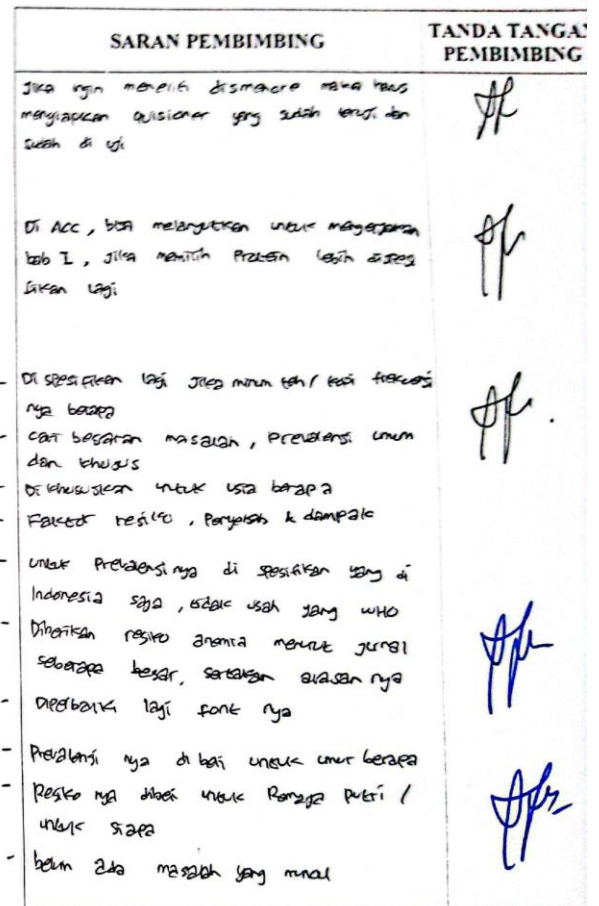 SARAN PEMBIMBING
TANDA TANGAN
PEMBIMBING
Jika ingin meneliti dismenore maka harus
menyiapkan quisioner yang sudah teruji dan
sudah di uji
Di Acc, bisa melanjutkan untuk mengerjakan
bab I, Jika memilih Protein lebih dispesi
fikan lagi
- Di spesifiken lagi Jika minum teh / kopi frekuensi
nya berapa
- cari besaran masalah, Prevalensi umum
dan khusus
- Di khususkan untuk usia berapa
- Faktor resiko, Penyebab & dampak
- untuk Prevalensi nya di spesifikan yang di
Indonesia saja, tidak usah yang WHO
- Diberikan resiko anemia menurut jurnal
seberapa besar, sertakan alasan nya
- Diperbaiki lagi font nya
- Prevalensi nya di beri untuk umur berapa
- Resiko nya diberi untuk Remaja Putri /
untuk siapa
- belum ada masalah yang muncul